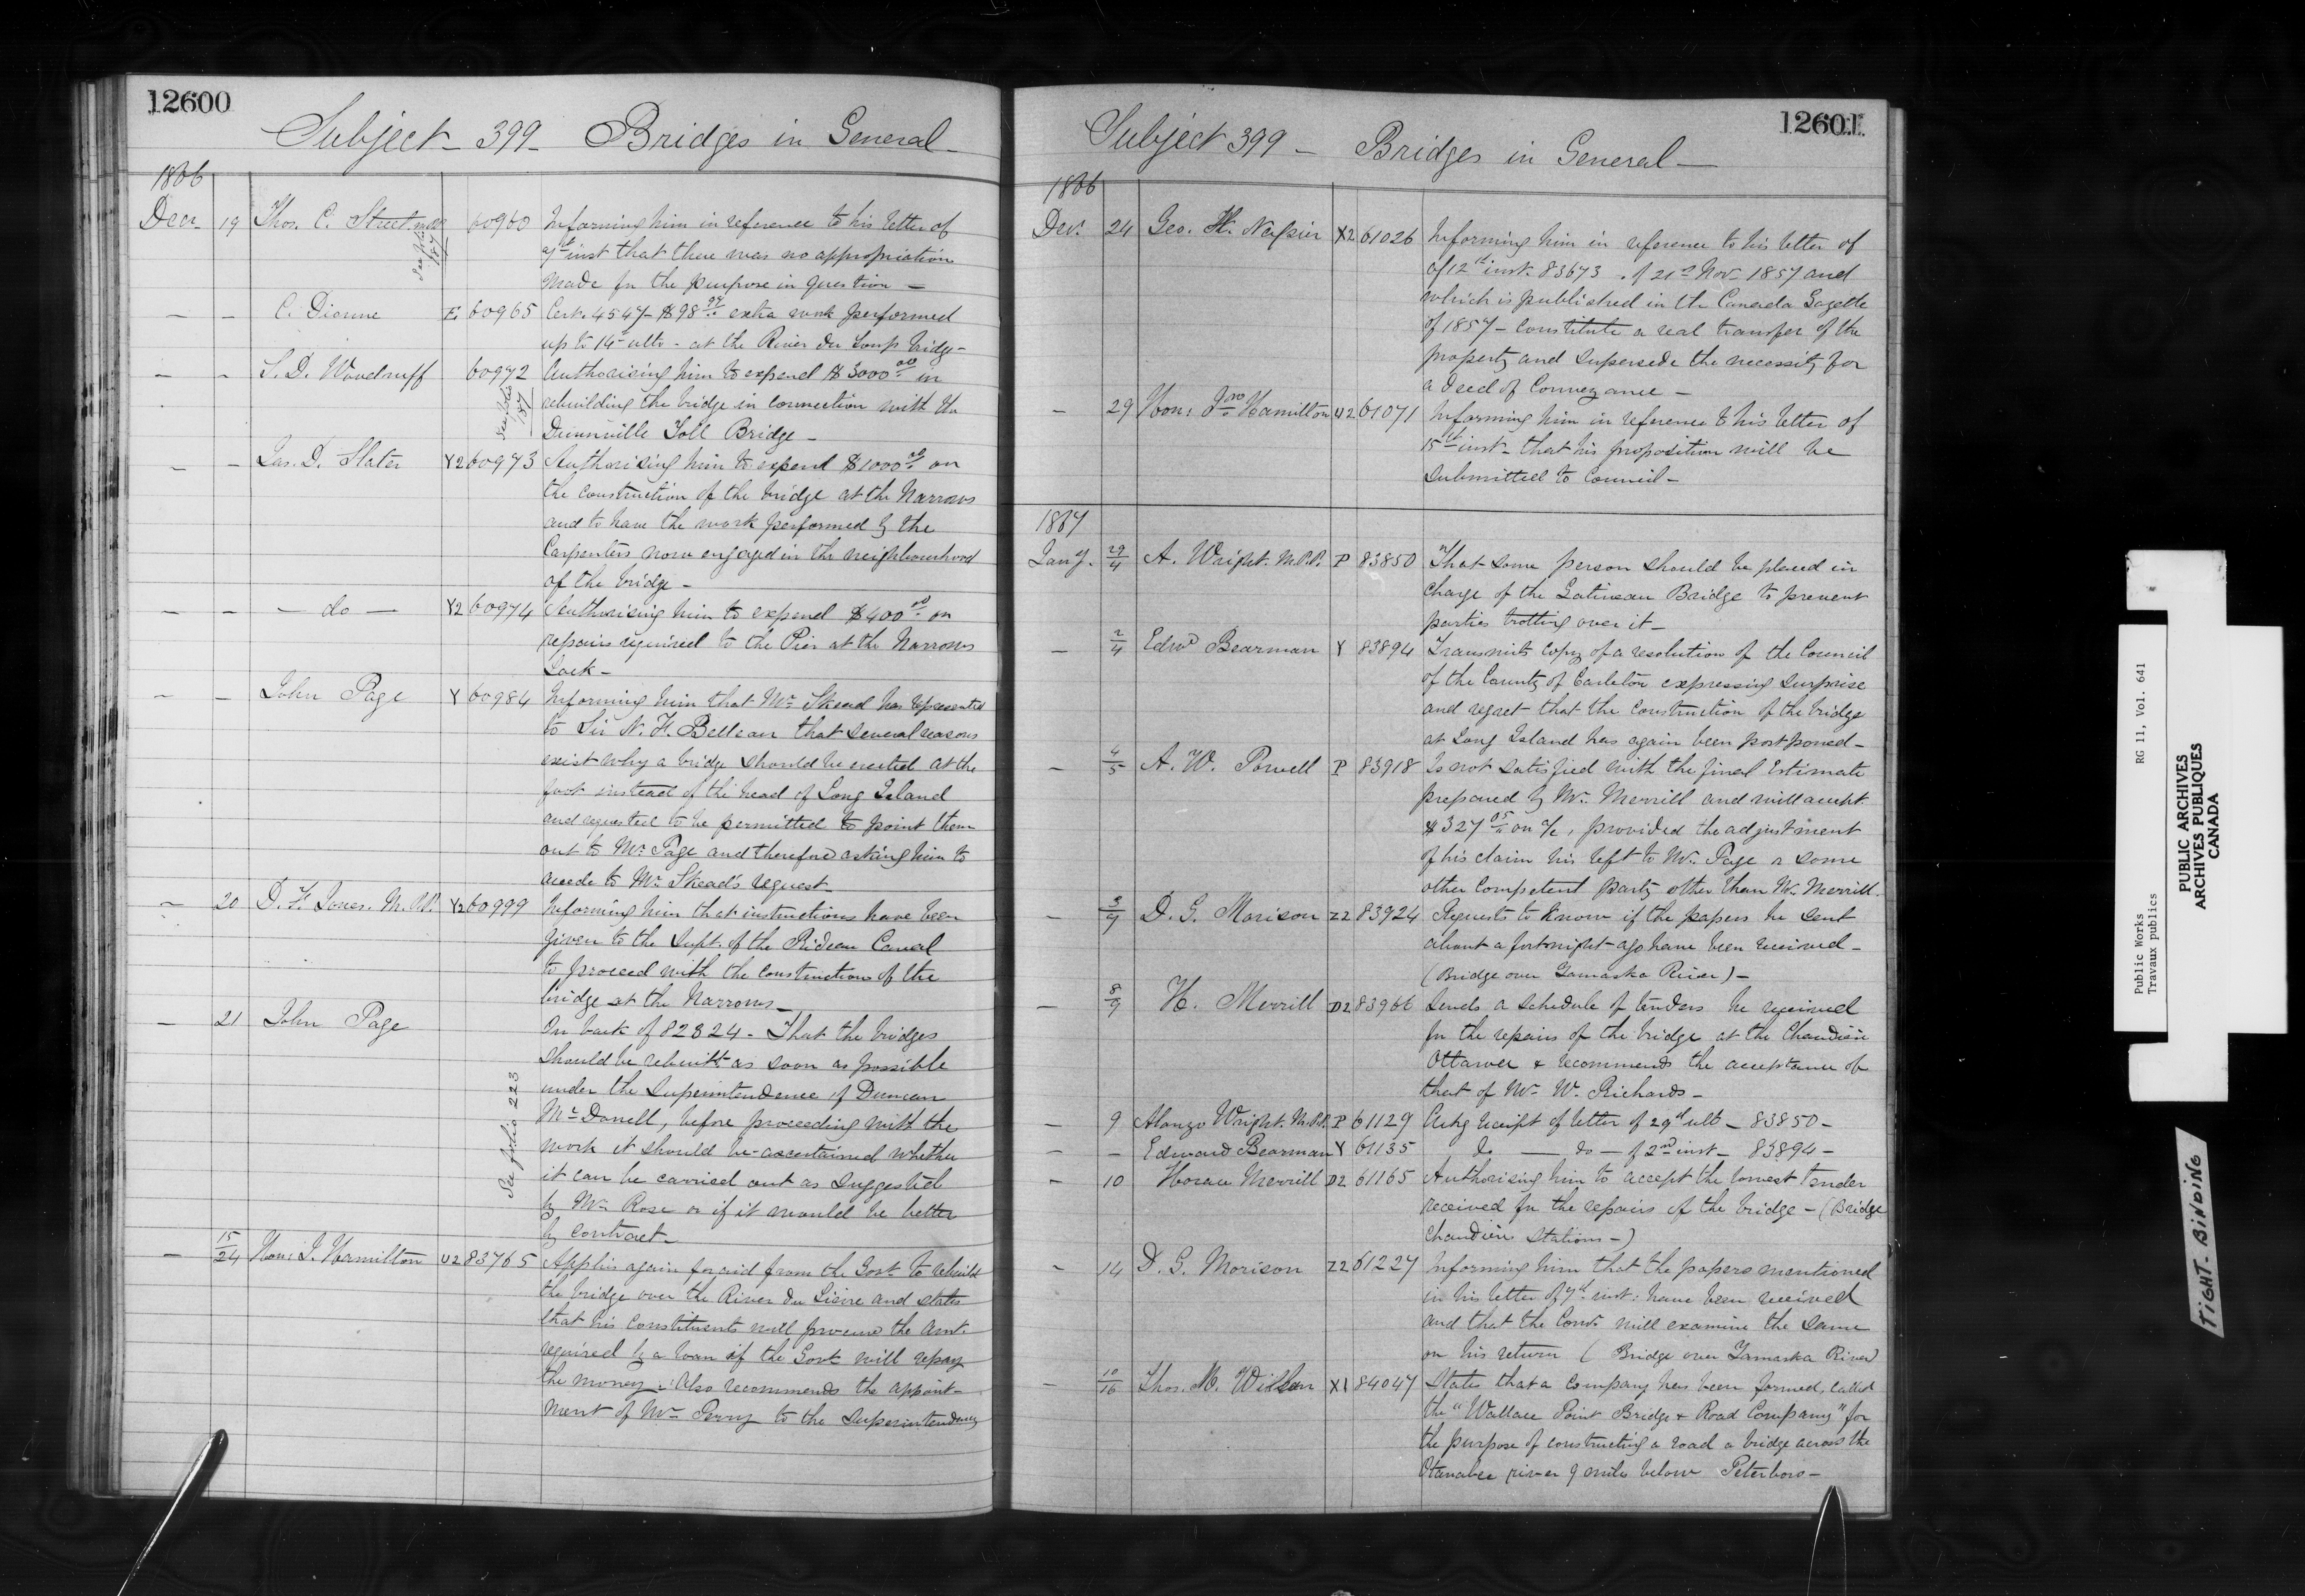 12600
Subject - 399 - Bridges in General -
1866
Decr 19 Thos. C. Street 60960 Informing him in reference to his letter of
inst that there was no appropriation
made for the purpose in question -
- - C. Dionne E 60965 Cert. 4547 - $98 extra work performed
up to 14 ulto - at the River du Loup bridge -
- - S. D. Woodruff 60972 Authorising him to expend $3000.00 in
rebuilding the bridge in connection with the
Dunnville Toll Bridge -
- - Jas. D. Slater Y2 60973 Authorising him to expend $1000.00 on
the construction of the bridge at the Narrows
and to have the work performed by the
Carpenters now engaged in the neighbourhood
of the bridge -
- - - do - Y2 60974 Authorising him to expend $400.00 on
repairs required to the Pier at the Narrows
Lock -
- - John Page Y 60984 Informing him that Mr Skead has represented
to Sir N. F. Belleau that several reasons
exist why a bridge should be erected at the
foot instead of the head of Long Island
and requested to be permitted to point them
out to Mr Page and therefore asking him to
accede to Mr Skead's request
- 20 D. F. Jones. M.P.P. Y2 60999 Informing him that instructions have been
given to the Supt. of the Rideau Canal
to proceed with the construction of the
bridge at the Narrows -
- 21 John Page On back of 82324 - That the bridges
should be rebuilt as soon as possible
under the Superintendence of Duncan
McDonell, before proceeding with the
work it should be ascertained whether
it can be carried out as suggested
by Mr Rose or if it would be better
by contract -
See folio 223
- 15/24 Hon: J. Hamilton U2 83765 Applies again for aid from the Govt to rebuild
the bridge over the River du Lièvre and states
that his constituents will procure the amt.
required by a loan if the Govt will repay
the money. Also recommends the appoint-
ment of Mr Perry to the Superintendency
12601
Subject 399 - Bridges in General -
1866
Decr 24 Geo. H. Napier X2 61026 Informing him in reference to his letter of
of 12th inst. 83673 . of 21st Nov 1857 and
which is published in the Canada Gazette
of 1857 - constitute a real transfer of the
property and supersede the necessity for
a deed of Conveyance -
- 29 Hon: Jno Hamilton U2 61071 Informing him in reference to his letter of
15th inst - that his proposition will be
submitted to Council -
1867
Jany. 29/4 A. Wright. M.P.P. P 83850 That some person should be placed in
charge of the Gatineau Bridge to prevent
parties trotting over it -
- 2/4 Edwd Bearman Y 83894 Transmits copy of a resolution of the Council
of the County of Carleton expressing surprise
and regret that the construction of the bridge
at Long Island has again been postponed -
- 4/5 A. W. Powell P 83918 Is not satisfied with the final Estimate
prepared by Mr. Merrill and will accept
$327 05 on a/c, provided the adjustment
of his claim his left to Mr. Page or some
other competent party other than Mr. Merrill.
- 3/7 D. G. Morison Z2 83924 Requests to know if the papers he sent
about a fortnight ago have been received -
(Bridge over Yamaska River) -
- 8/9 H. Merrill D2 83966 Sends a schedule of tenders he received
for the repairs of the bridge at the Chaudière
Ottawa & recommends the acceptance of
that of Mr. W. Richards -
- 9 Alonzo Wright. M.P.P. P 61129 Ackg receipt of letter of 29th ulto - 83850 -
- - Edward Bearman Y 61135 do - do - of 2nd inst - 83894 -
- 10 Horace Merrill D2 61165 Authorising him to accept the lowest tender
received for the repairs of the bridge - (Bridge
Chaudière Stations -)
- 14 D. G. Morison Z2 61227 Informing him that the papers mentioned
in his letter of 7th inst: have been received
and that the Comr. will examine the same
on his return ( Bridge over Yamaska River)
- 10/16 Thos. M. Wilson X1 84047 States that a Company has been formed, called
the "Wallace Point Bridge & Road Company" for
the purpose of constructing a road a bridge across the
Otanabee river 9 miles below Peterboro -
Public Works RG 11, Vol. 641
Travaux publics
PUBLIC ARCHIVES
ARCHIVES PUBLIQUES
CANADA
TIGHT. BINDING